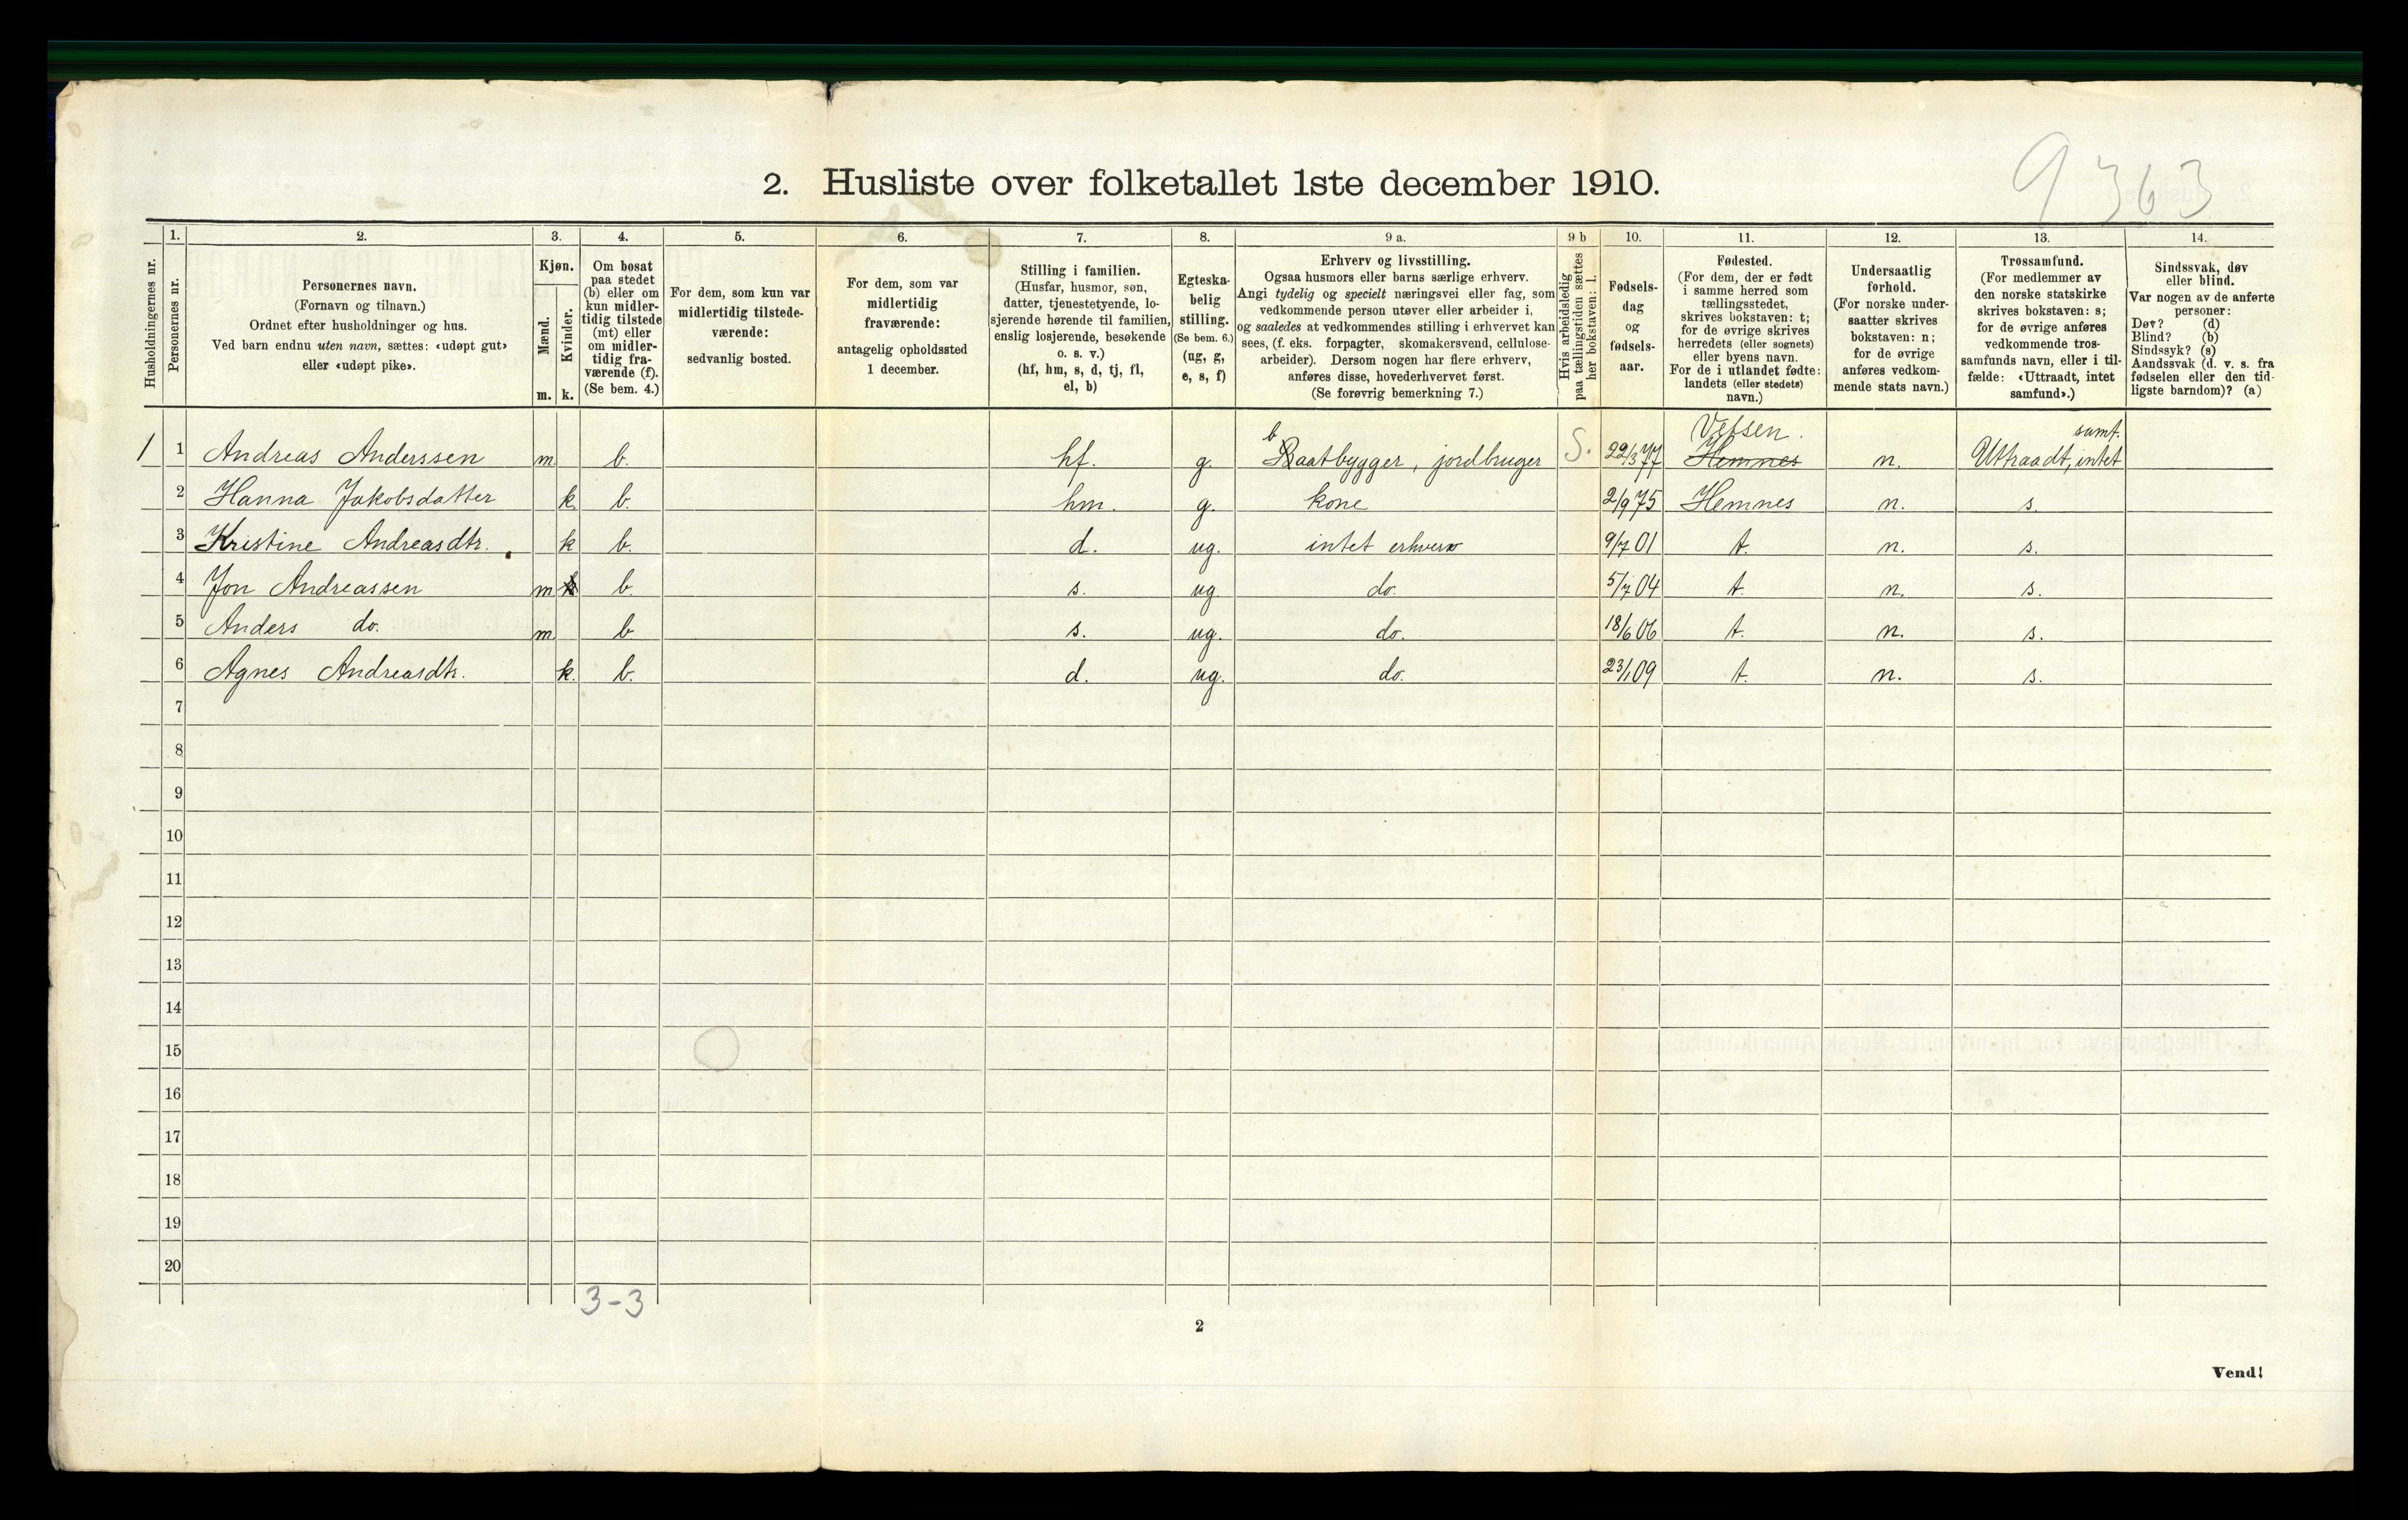 9363
2. Husliste over folketallet 1ste december 1910.
Husholdningernes nr.
1.
Personernes nr.
2.
Personernes navn.
(Fornavn og tilnavn.)
Ordnet efter husholdninger og hus.
Ved barn endnu uten navn, sættes: «udøpt gut»
eller «udøpt pike».
3.
Kjøn.
Mænd.
Kvinder.
m. k.
4.
Om bosat
paa stedet
(b) eller om
kun midler-
tidig tilstede
(mt) eller
om midler-
tidig fra-
værende (f).
(Se bem. 4.)
5.
For dem, som kun var
midlertidig tilstede-
værende:
sedvanlig bosted.
6.
For dem, som var
midlertidig
fraværende:
antagelig opholdssted
1 december.
7.
Stilling i familien.
(Husfar, husmor, søn,
datter, tjenestetyende, lo-
sjerende hørende til familien,
enslig losjerende, besøkende
o. s. v.)
(hf, hm, s, d, tj, fl,
el, b)
8.
Egteska-
belig
stilling.
(Se bem. 6.)
(ug, g,
e, s, f)
9 a.
Erhverv og livsstilling.
Ogsaa husmors eller barns særlige erhverv.
Angi tydelig og specielt næringsvei eller fag, som
vedkommende person utøver eller arbeider i,
og saaledes at vedkommendes stilling i erhvervet kan
sees, (f. eks. forpagter, skomakersvend, cellulose-
arbeider). Dersom nogen har flere erhverv,
anføres disse, hovederhvervet først.
(Se forøvrig bemerkning 7.)
9 b
Hvis arbeidsledig
paa tællingstiden sættes
her bokstaven: l.
10.
Fødsels-
dag
og
fødsels-
aar.
11.
Fødested.
(For dem, der er født
i samme herred som
tællingsstedet,
skrives bokstaven: t;
for de øvrige skrives
herredets (eller sognets)
eller byens navn.
For de i utlandet fødte:
landets (eller stedets)
navn.)
12.
Undersaatlig
forhold.
(For norske under-
saatter skrives
bokstaven: n;
for de øvrige
anføres vedkom-
mende stats navn.)
13.
Trossamfund.
(For medlemmer av
den norske statskirke
skrives bokstaven: s;
for de øvrige anføres
vedkommende tros-
samfunds navn, eller i til-
fælde: «Uttraadt, intet
samfund».)
14.
Sindssvak, døv
eller blind.
Var nogen av de anførte
personer:
Døv? (d)
Blind? (b)
Sindssyk? (s)
Aandssvak (d. v. s. fra
fødselen eller den tid-
ligste barndom)? (a)
b Vefsen. samf.
1 1 Andreas Anderssen m. b. hf. g. Baatbygger, jordbruger S. 22/3 77 Hemnes n. Uttraadt, intet
2 Hanna Jakobsdatter k. b. hm. g. kone 2/9 75 Hemnes n. s.
3 Kristine Andreasdtr. k b. d. ug. intet erhverv 9/7 01 t. n. s.
4 Jon Andreassen m k b. s. ug. do. 5/7 04 t. n. s.
5 Anders do. m b s. ug. do. 18/6 06 t. n. s.
6 Agnes Andreasdtr. k. b. d. ug. do. 23/1 09 t. n. s.
7
8
9
10
11
12
13
14
15
16
17
18
19
20
3-3
2
Vend!